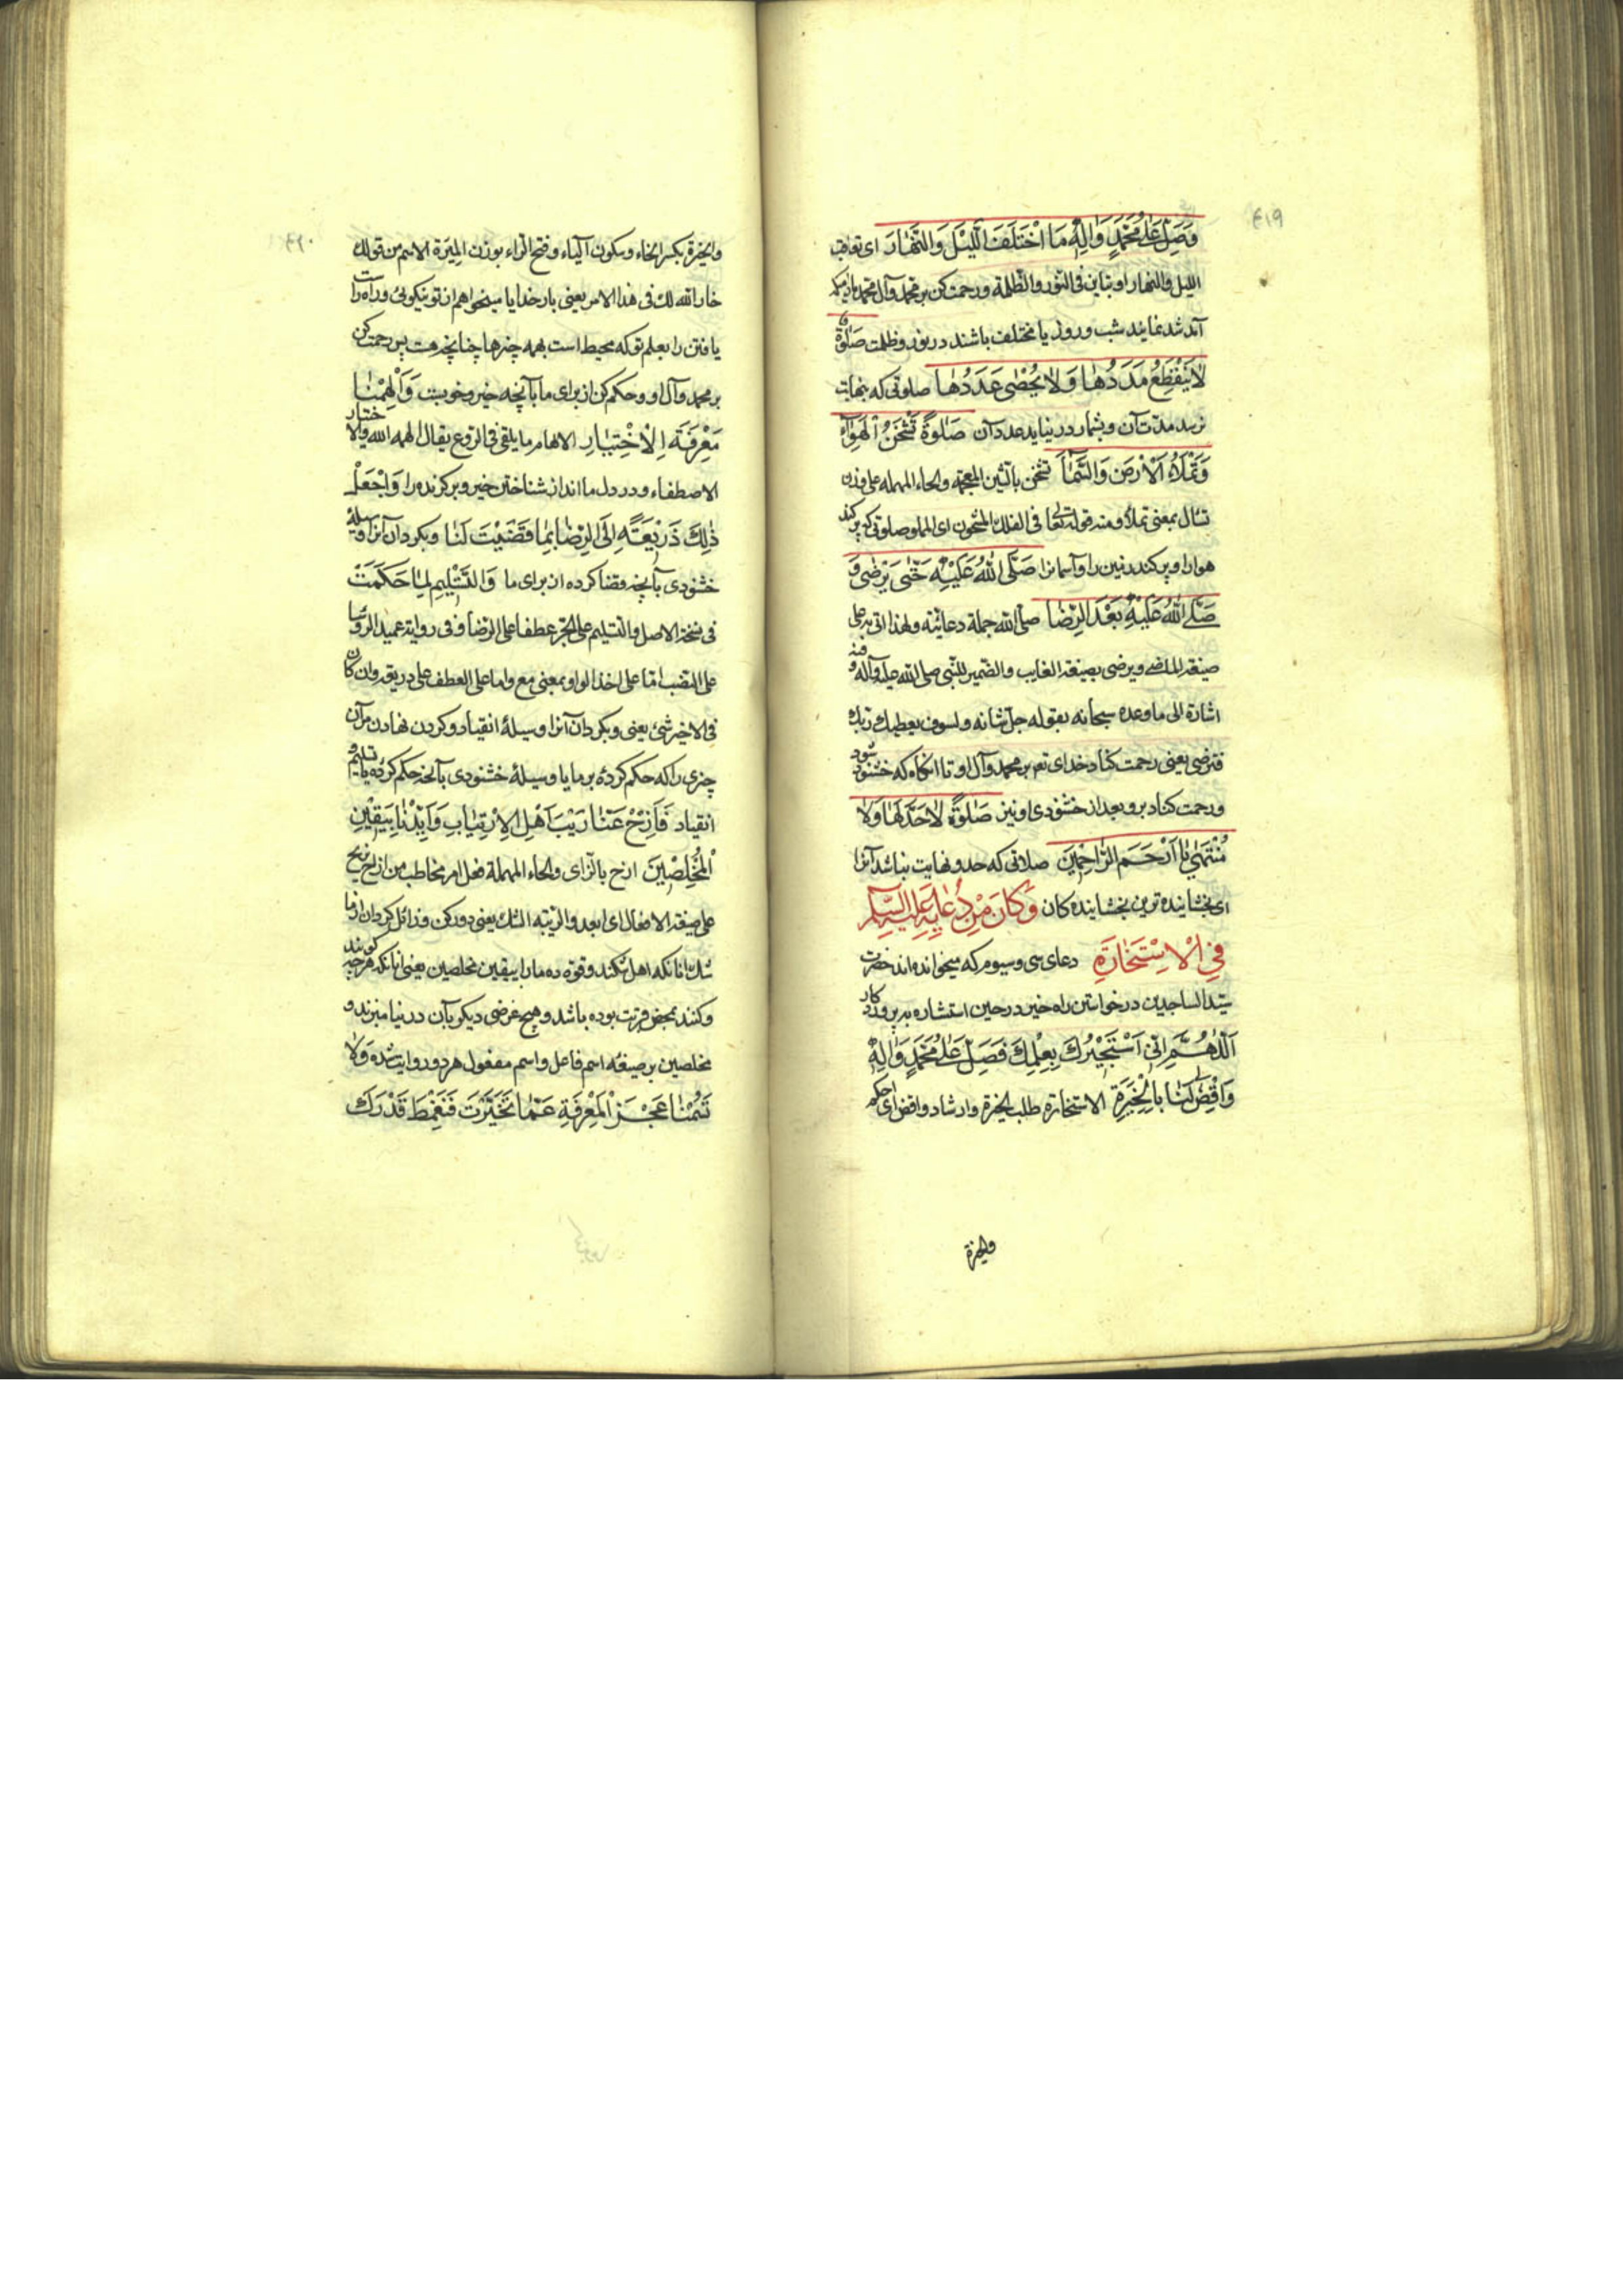 ۴۱۹
وَصَلِّ عَلٰى مُحَمَّدٍ وَاٰلِهِ مَا اخْتَلَفَ اللَّيْلُ وَالنَّهٰارُ اى تعاقب
الليل والنهار او تباين فى النور والظلمة ورحمت كن بر محمد وآل محمد مادامكه
آمد شد نمايند شب وروز يا مختلف باشند در نور وظلمت صَلٰوةً
لاٰ يَنْقَطِعُ مَدَدُهٰا وَلاٰ يُحْصٰى عَدَدُهٰا صلوتى كه بنهايت
نرسد مدت آن وبشمار در نيايد عدد آن صَلٰوةً تَشْحَنُ الْهَوٰاءَ
وَتَمْلَأُ الْاَرْضَ وَالسَّمٰاءَ تشحن بالشين المعجمة والحاء المهملة على وزن
تسأل بمعنى تملأ ومنه قوله تعالى فى الفلك المشحون اى المملو صلوتى كه پر كند
هوا را وپر كند زمين را وآسمانرا صَلَّى اللّٰهُ عَلَيْهِ حَتّٰى يَرْضٰى وَ
صَلَّى اللّٰهُ عَلَيْهِ بَعْدَ الرِّضٰا صلى الله جملة دعائية ولهذا اتى به على
صيغة الماضى ويرضى بصيغة الغايب والضمير للنبى صلى الله عليه وآله وفيه
اشارة الى ما وعده سبحانه بقوله جل شانه ولسوف يعطيك ربك
فترضى يعنى رحمت كناد خداى تع بر محمد وآل او تا آنگاه كه خشنود شود
ورحمت كناد برو بعد از خشنودى او نيز صَلٰوةً لاٰ حَدَّ لَهٰا وَلاٰ
مُنْتَهٰى يٰا اَرْحَمَ الرّٰاحِمِينَ صلاتى كه حد ونهايت نباشد آنرا
اى بخشاينده ترين بخشاينده كان وَكٰانَ مِنْ دُعٰائِهِ عَلَيْهِ السَّلٰمُ
فِى الْاِسْتِخٰارَةِ دعاى سى وسيوم كه ميخوانده اند حضرت
سيد الساجدين در خواستن راه خير در حين استشاره به پروردكار
اَللّٰهُمَّ اِنِّى اَسْتَخِيْرُكَ بِعِلْمِكَ فَصَلِّ عَلٰى مُحَمَّدٍ وَاٰلِهِ
وَاقْضِ لَنٰا بِالْخِيَرَةِ الاستخارة طلب الخيرة وارشاد واقض اى احكم
والخيرة
۴۲۰
والخيرة بكسر الخاء وسكون الياء وفتح الراء بوزن الميرة الاسم من قولك
خار الله لك فى هذا الامر يعنى بار خدايا ميخواهم از تو نيكوئى وراه راست
يافتن را بعلم تو كه محيط است بهمه چيزها چنانچه هست پس رحمت كن
بر محمد وآل او وحكم كن از براى ما بآنچه خير وخوبيست وَاَلْهِمْنٰا
مَعْرِفَةَ الْاِخْتِيٰارِ الالهام ما يلقى فى الروع يقال الهمه الله والاختيار
الاصطفاء ودر دل ما انداز شناختن خير وبركزيده را وَاجْعَلْ
ذٰلِكَ ذَرِيْعَةً اِلَى الرِّضٰا بِمٰا قَضَيْتَ لَنٰا وبكردان آنرا وسيلهٔ
خشنودى بآنچه قضا كرده از براى ما وَالتَّسْلِيْمِ لِمٰا حَكَمْتَ
فى نسخة الاصل والتسليم على الجر عطفا على الرضا وفى رواية عميد الرؤسا
على النصب اما على اخذ الواو بمعنى مع واما على العطف على ذريعة وان كان
فى الاخير شئ يعنى وبكردان آنرا وسيلهٔ انقياد وكردن نهادن مر آن
چيزى را كه حكم كردهٔ بر ما يا وسيلهٔ خشنودى بآنچه حكم كردهٔ يا تسليم و
انقياد فَاَزِحْ عَنّٰا رَيْبَ اَهْلِ الْاِرْتِيٰابِ وَاَيِّدْنٰا بِيَقِيْنِ
الْمُخْلِصِيْنَ ازح بالزاى والحاء المهملة فعل امر مخاطب من ازاح يزيح
على صيغة الافعال اى ابعد والريبة الشك يعنى دور كن وزائل كردان از ما
شك آنانكه اهل شكند وقوة ده ما را بيقين مخلصين يعنى آنانكه هرچه كويند
وكنند بمحض قربت بوده باشد وهيچ غرضى ديكر بآن در نياميزند و
مخلصين بر صيغهٔ اسم فاعل واسم مفعول هر دو روايت شده وَلاٰ
تَسُمْنٰا عَجْزَ الْمَعْرِفَةِ عَمّٰا تَخَيَّرْتَ فَنَغْمِطَ قَدْرَكَ